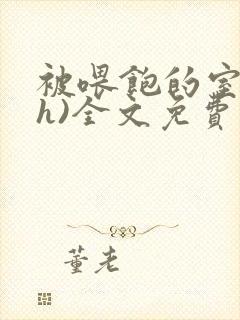 被喂飽的室
h)全文免費
董老